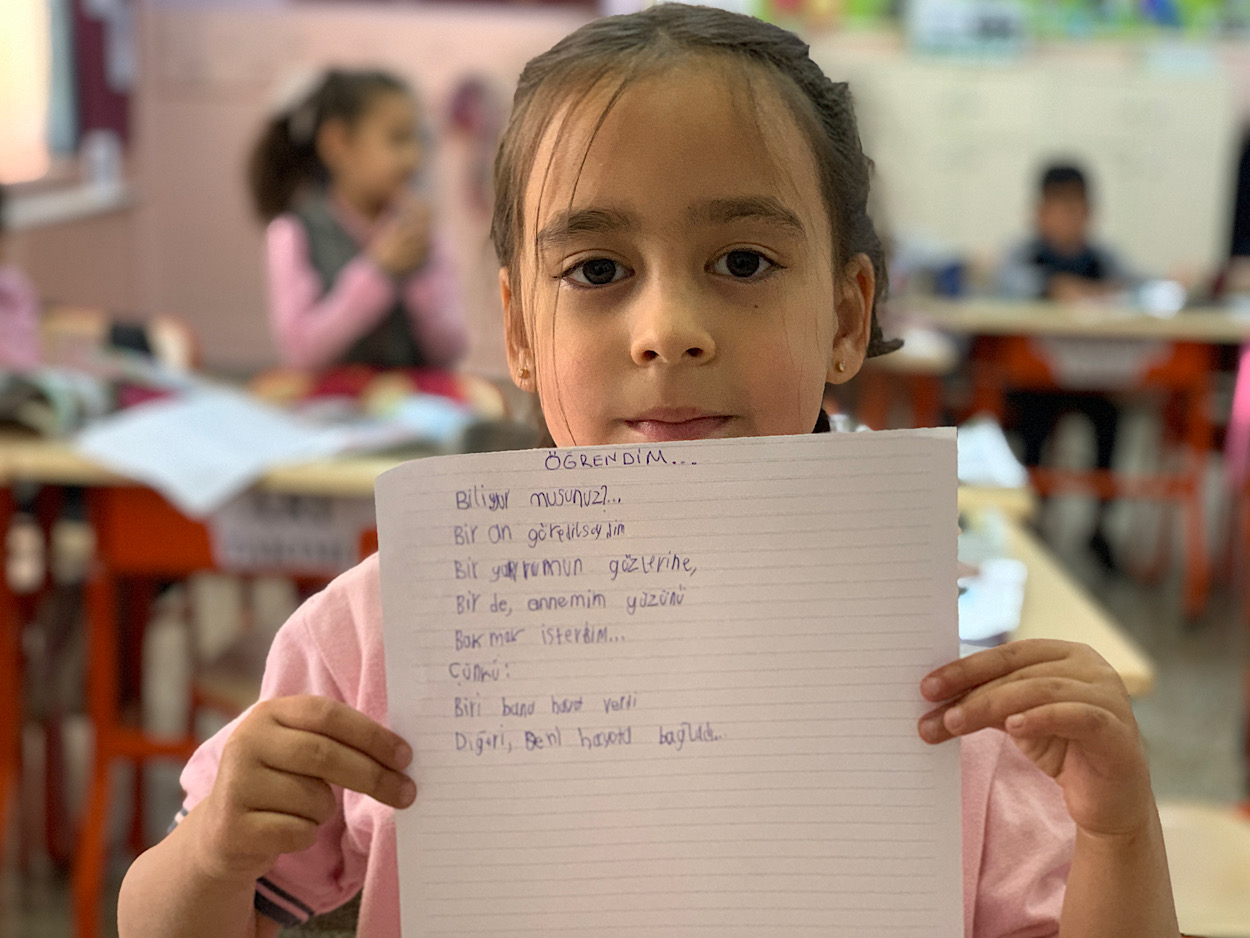 ÖĞRENDİM...
Biliyor musunuz?...
Bir an görebilseydim
Bir yavrumun gözlerine,
Bir de, annemin yüzünü
Bakmak isterdim...
Çünkü:
Biri bana hayat verdi
Diğeri, Beni hayata bağladı...